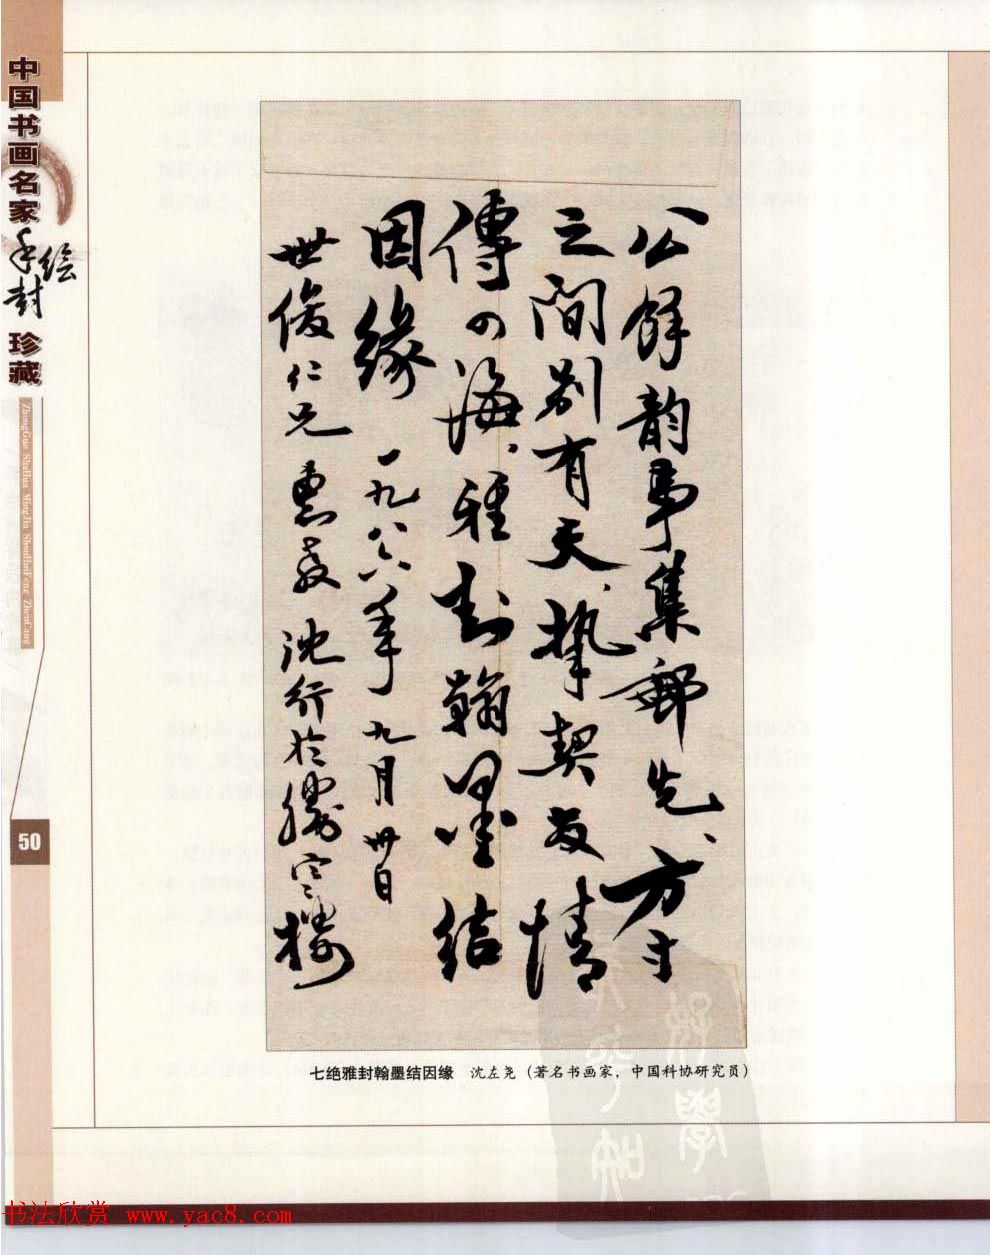 中国书画名家手绘封珍藏
ZhongGuo ShuHua MingJia ShouHuiFeng ZhenCang
50
公餘韵事集郵先、方寸
之間别有天、摯契友情
傳四海、雅封翰墨結
因緣 一九八六年九月卅日
世俊仁兄惠教 沈行於勝寒樓
七绝雅封翰墨结因缘 沈左尧（著名书画家，中国科协研究员）
书法欣赏 www.yac8.com